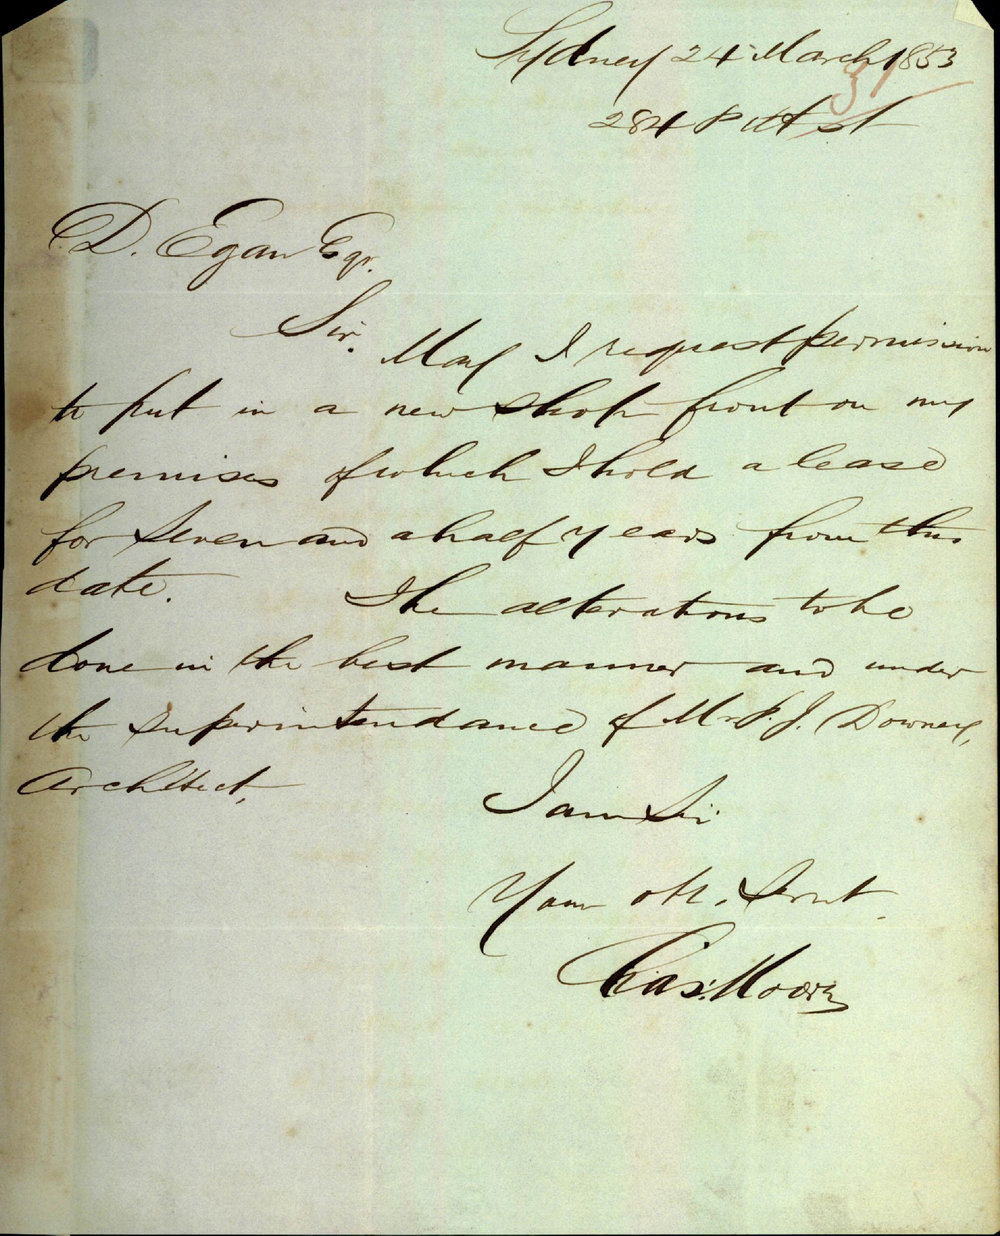 Sydney 24 March 1853
31
284 Pitt st
D. Egan Esqr.
Sir. May I request permission
to put in a new shop front on my
premises of which I hold a lease
for seven and a half years from this
date. The alterations to be
done in the best manner and under
the superintendance of Mr P. J. Downey,
Architect,
I am Sir
Your obt. Servt.
Chas: Moore